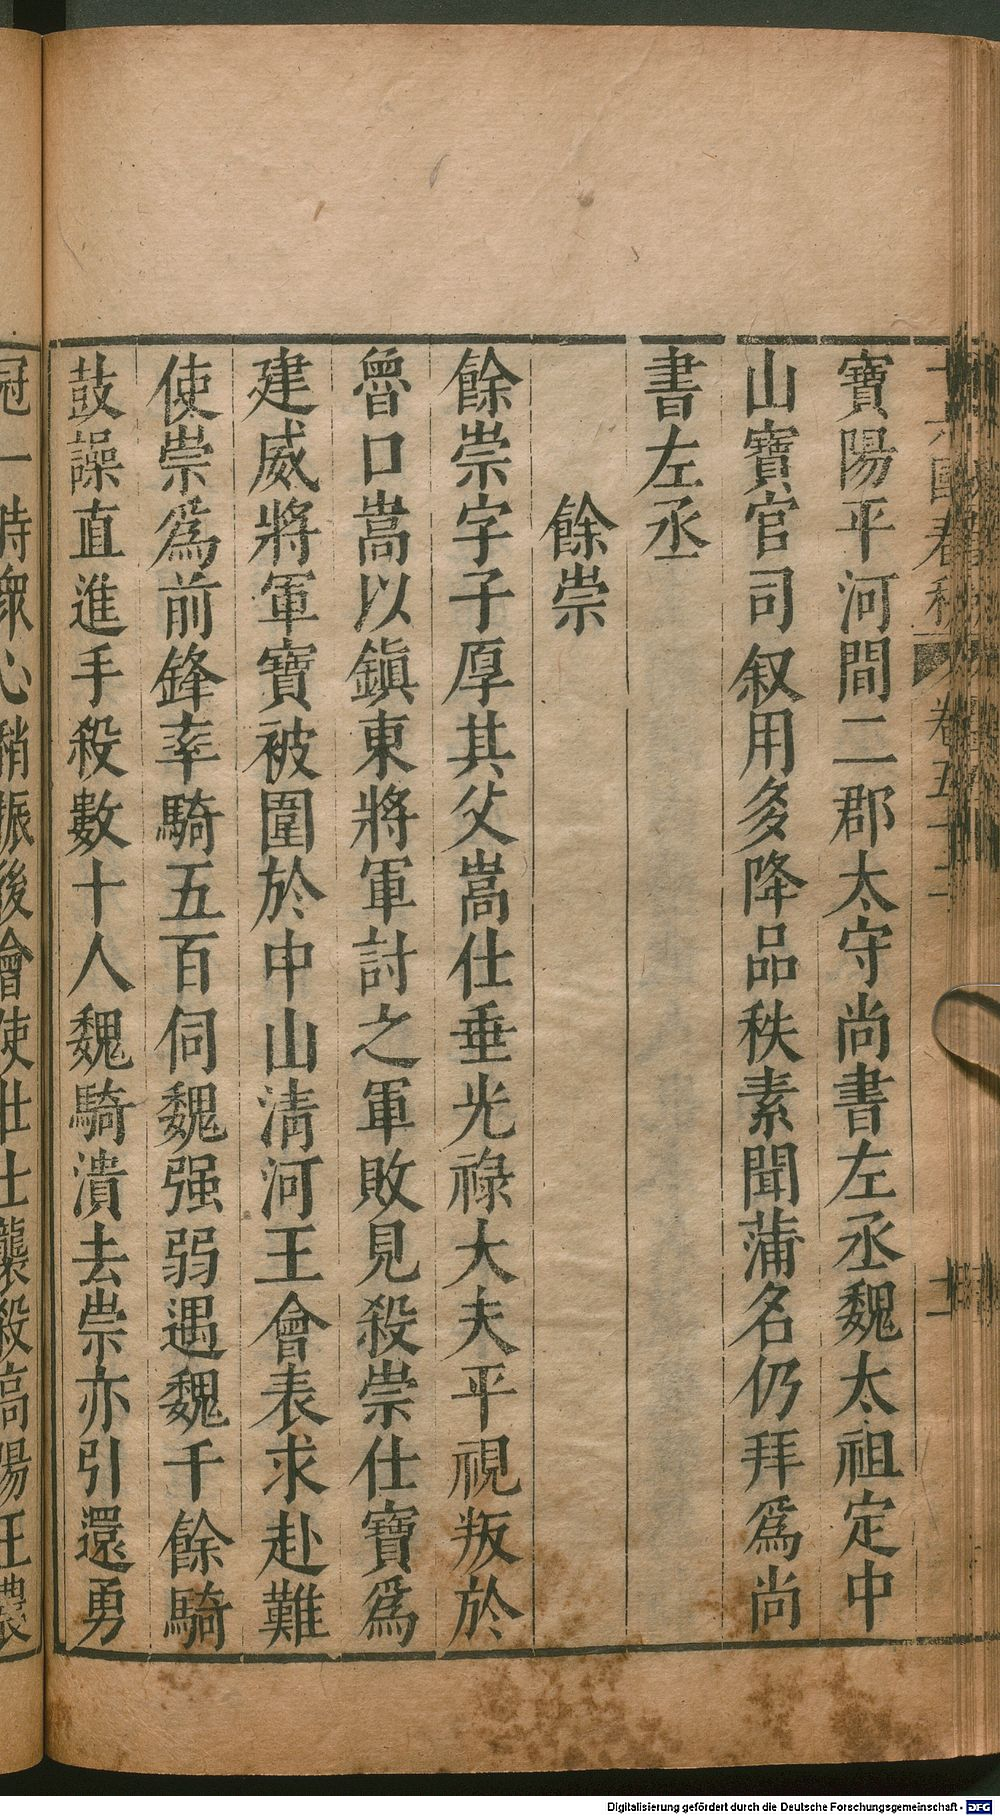 寶陽平河間二郡太守尚書左丞魏太祖定中
山寶官司叙用多降品秩素聞蒲名仍拜爲尚
書左丞
餘崇
餘崇字子厚其父嵩仕垂光祿大夫平視叛於
魯口嵩以鎮東將軍討之軍敗見殺崇仕寶爲
建威將軍寶被圍於中山清河王會表求赴難
使崇爲前鋒率騎五百伺魏强弱遇魏千餘騎
鼓譟直進手殺數十人魏騎潰去崇亦引還勇
冠一時衆心稍振後會使壯士襲殺高陽王農
Digitalisierung gefördert durch die Deutsche Forschungsgemeinschaft - DFG